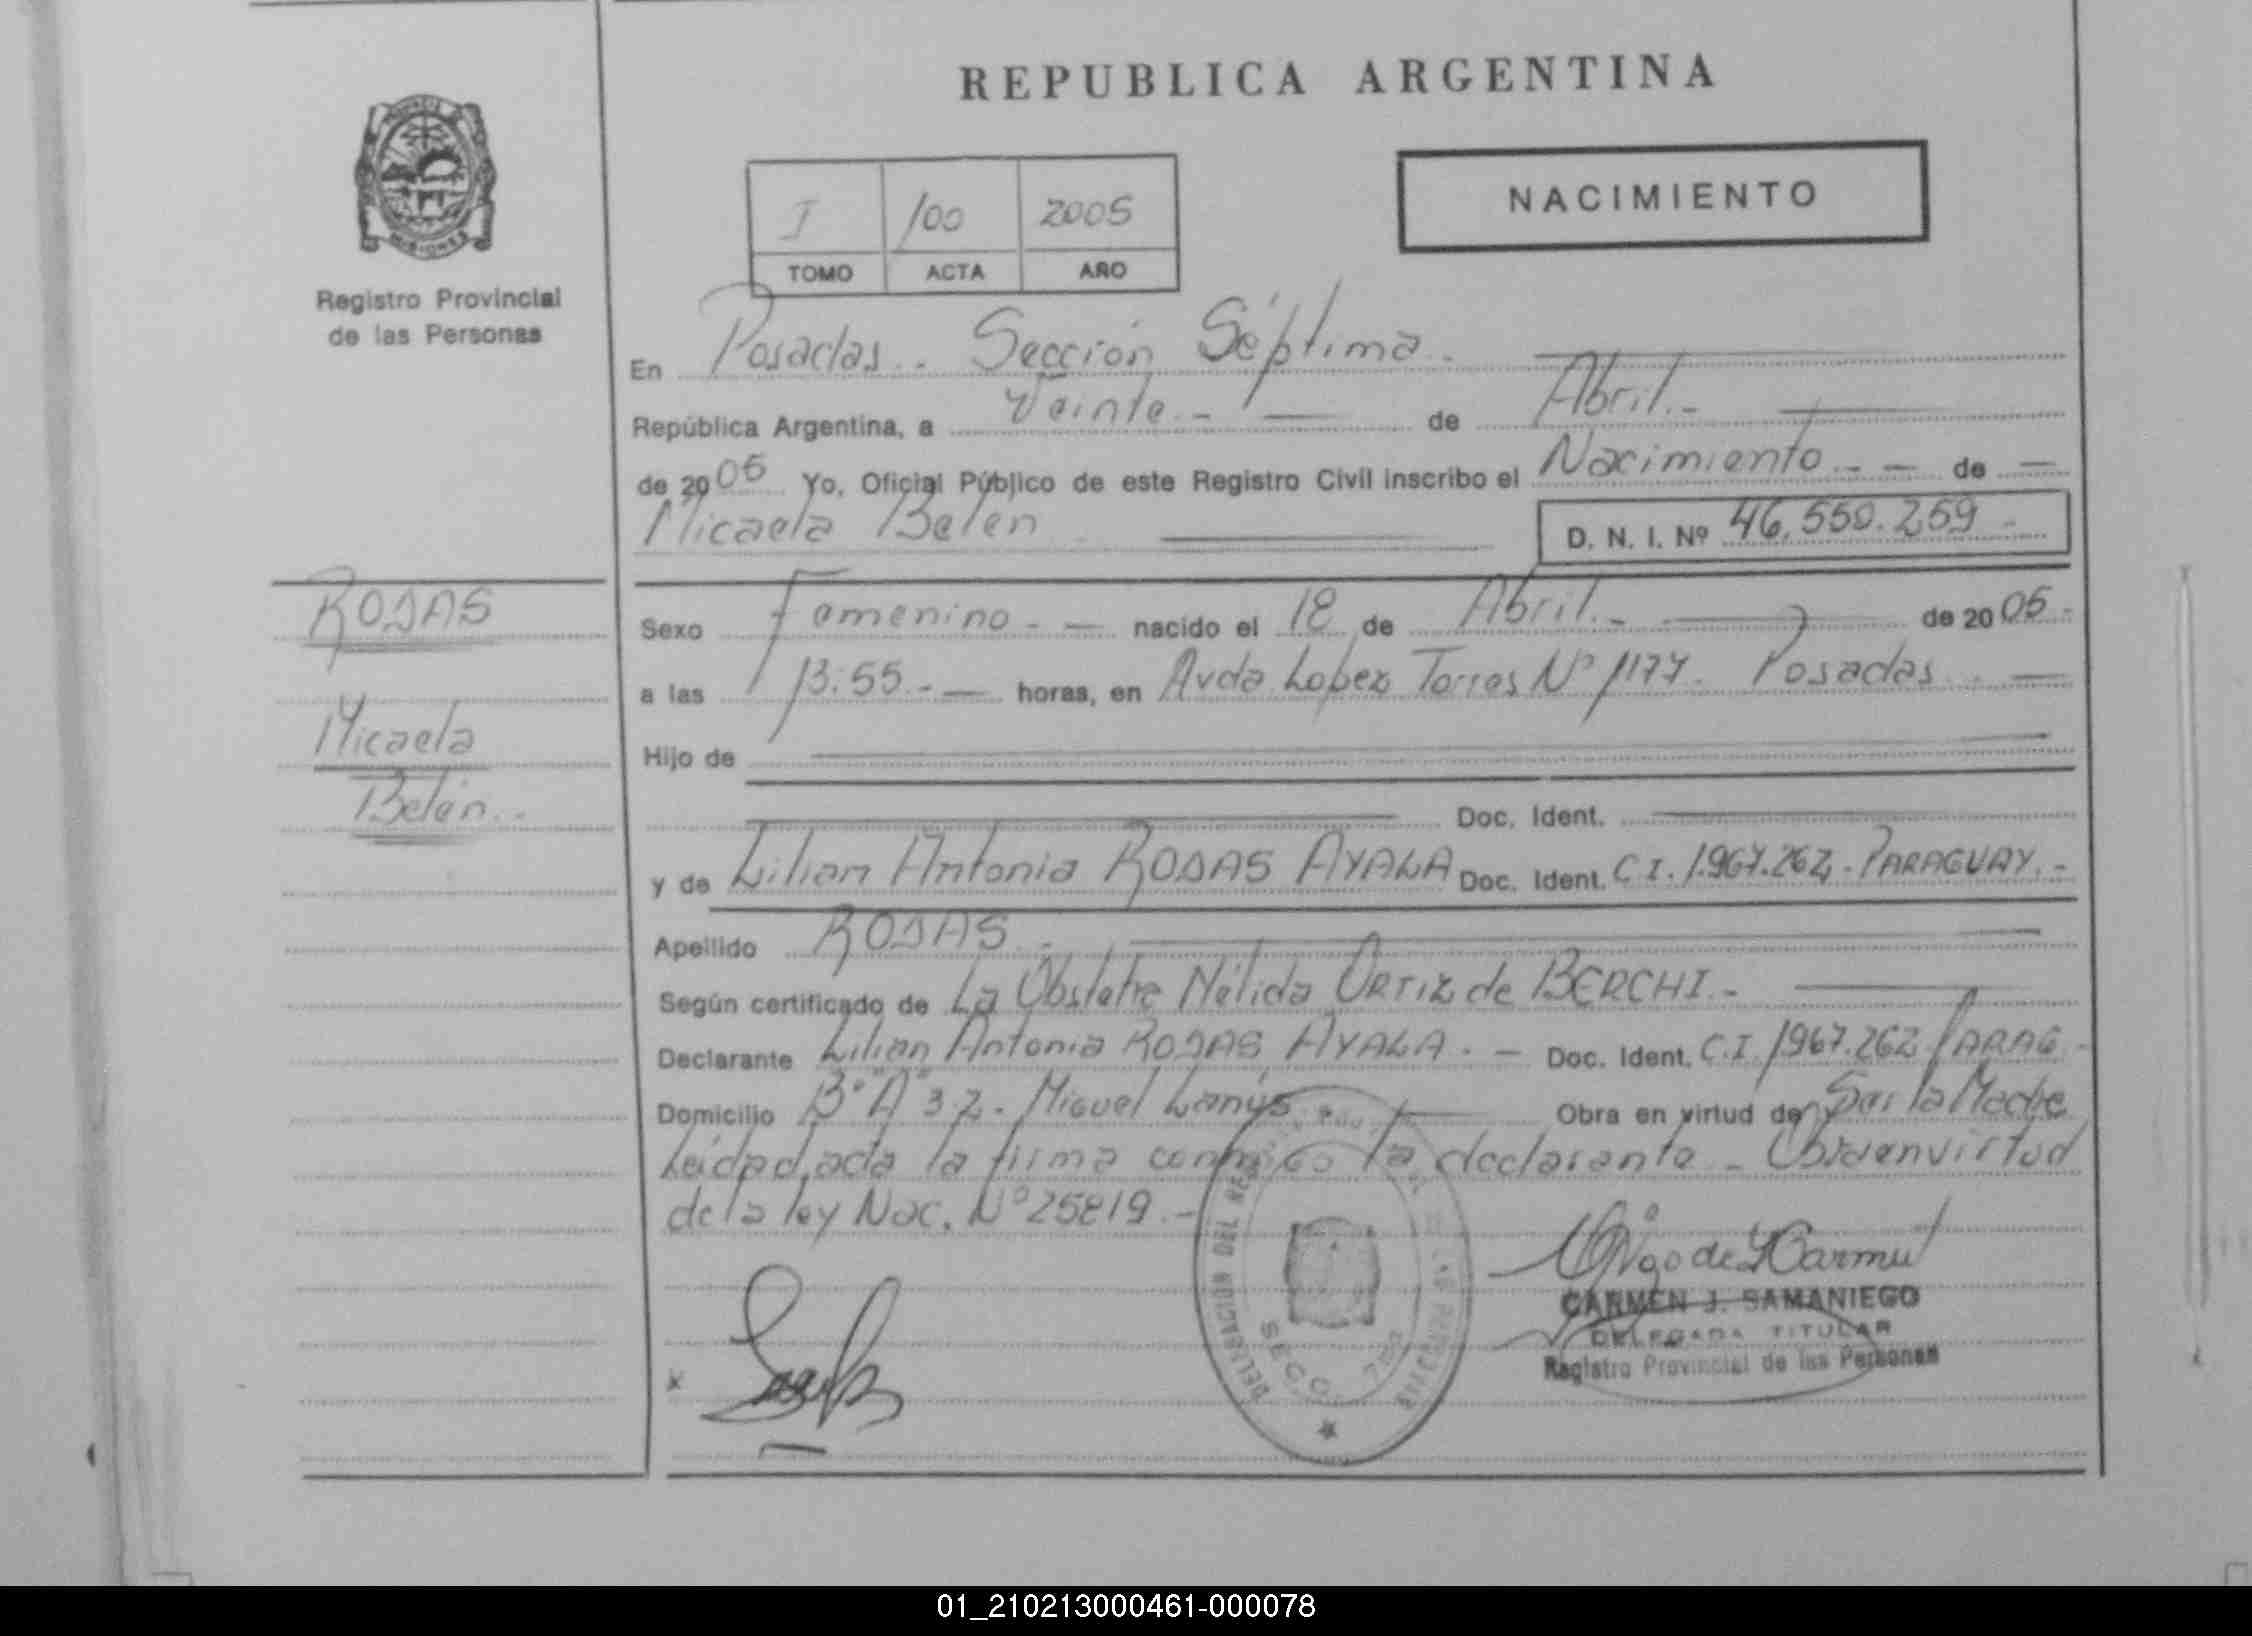 REPUBLICA ARGENTINA
PROVINCIA
MISIONES
Registro Provincial
de las Personas
I /00 2005
TOMO ACTA AÑO
NACIMIENTO
En Posadas.. Sección Séptima.
República Argentina, a Veinte.- de Abril.-
de 2005 Yo, Oficial Público de este Registro Civil inscribo el Nacimiento.- - de -
Micaela Belén
D. N. I. Nº 46.550.259.-
ROJAS
Micaela
Belén..
Sexo Femenino - - nacido el 18 de Abril.- de 2005.-
a las 13:55.- - horas, en Avda Lopez Torres Nº 1177. Posadas.. -
Hijo de
Doc. Ident.
y de Lilian Antonia ROJAS AYALA Doc. Ident. C I. 1.967.262.- PARAGUAY.-
Apellido ROJAS.-
Según certificado de La Obstetre Nélida ORTIZ de BERCHI.-
Declarante Lilian Antonia ROJAS AYALA. - Doc. Ident. C.I. 1967.262 PARAG.-
Domicilio Bº "A" 3.2. Miguel Lanús Obra en virtud de Ser la Madre
Leída la firma conmigo la declarante - Obra en virtud
de la ley Nac. Nº 25819.-
DELEGACION DEL REGISTRO DE LAS PERSONAS
SECC.
x
CARMEN J. SAMANIEGO
DELEGADA TITULAR
Registro Provincial de las Personas
01_210213000461-000078